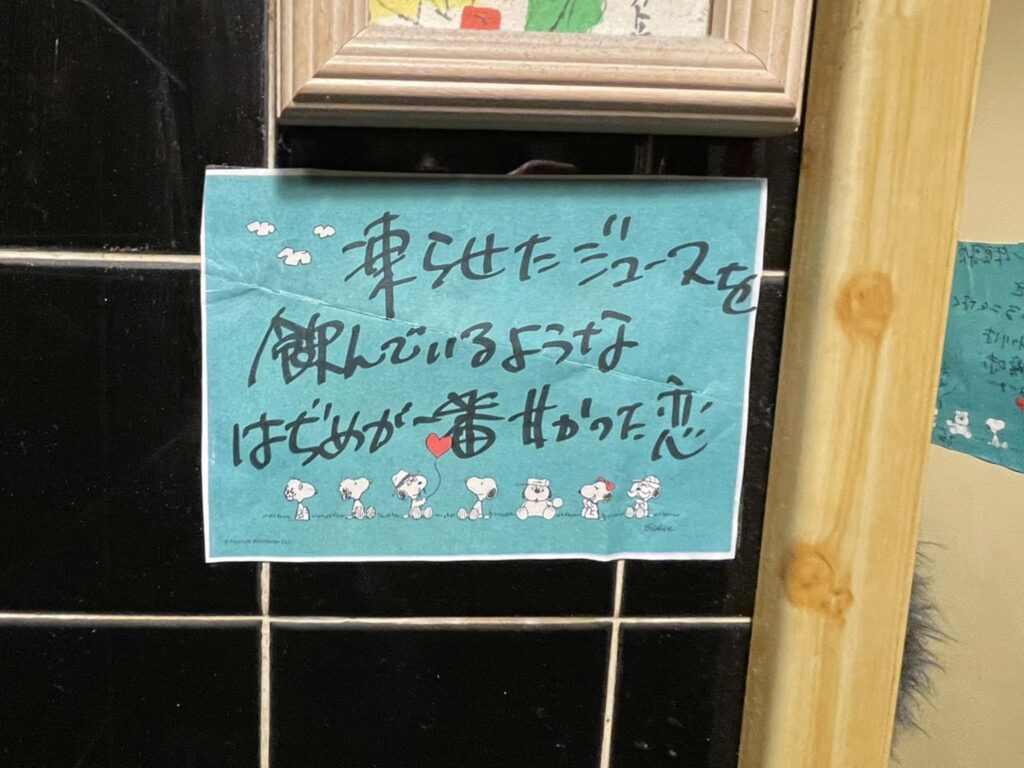 凍らせたジュースを
飲んでいるような
はじめが一番甘かった恋